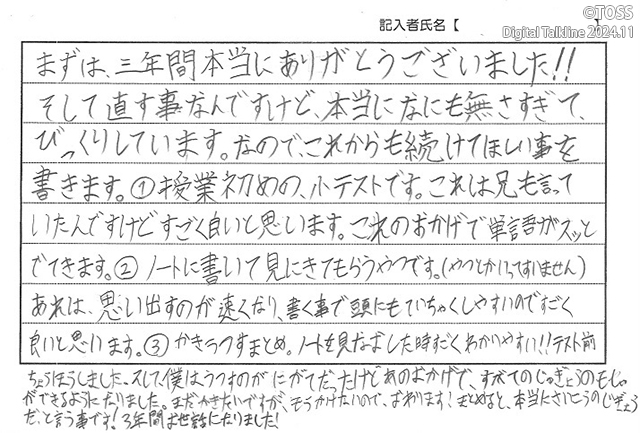 ©TOSS
Digital Talkline 2024.11
記入者氏名【
まずは、三年間本当にありがとうございました!!
そして直す事なんですけど、本当になにも無さすぎて、
びっくりしています。なので、これからも続けてほしい事を
書きます。①授業初めの、小テストです。これは兄も言って
いたんですけどすごく良いと思います。これのおかげで単語がスッと
でてきます。②ノートに書いて見にきてもらうやつです。(やつとかいってすいません)
あれは、思い出すのが速くなり、書く事で頭にもていちゃくしやすいのですごく
良いと思います。③かきうつすまとめ。ノートを見なおした時すごくわかりやすい!!テスト前
ちょうほうしました、そして、僕はうつすのがにがてだったけどあのおかげで、すべてのじゅぎょうのもじゃ
ができるようになりました。まだかきたいですが、もうかけないので、おわります!まとめると、本当にさいこうのじぎょう
だ、と言う事です!3年間お世話になりました!